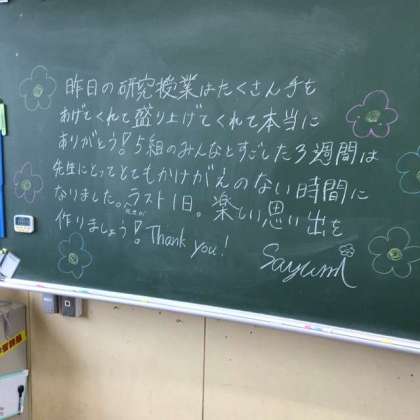 昨日の研究授業はたくさん手を
あげてくれて盛り上げてくれて本当に
ありがとう!5組のみんなとすごした3週間は
先生にとってとてもかけがえのない時間に
なりました。ラスト1日。楽しい思い出を
作りましょう!Thank you!
Sayumi